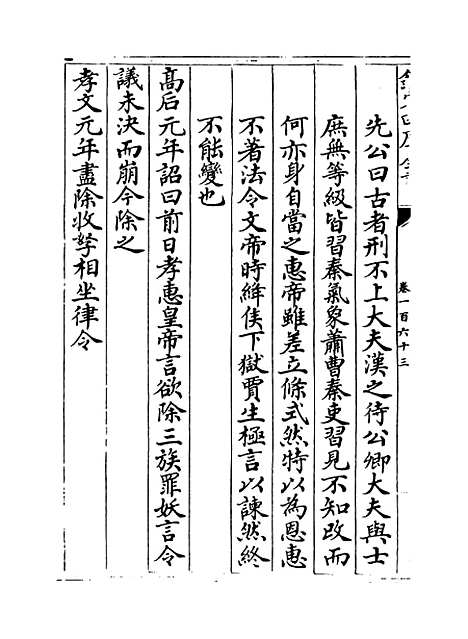 先公曰古者刑不上大夫漢之待公卿大夫與士
庶無等級皆習秦氣象蕭曹秦吏習見不知改而
何亦身自當之惠帝雖差立條式然特以為恩惠
不著法令文帝時絳侯下獄賈生極言以諫然終
不能變也
高后元年詔曰前日孝惠皇帝言欲除三族罪妖言令
議未決而崩今除之
孝文元年盡除收孥相坐律令
卷一百六十三